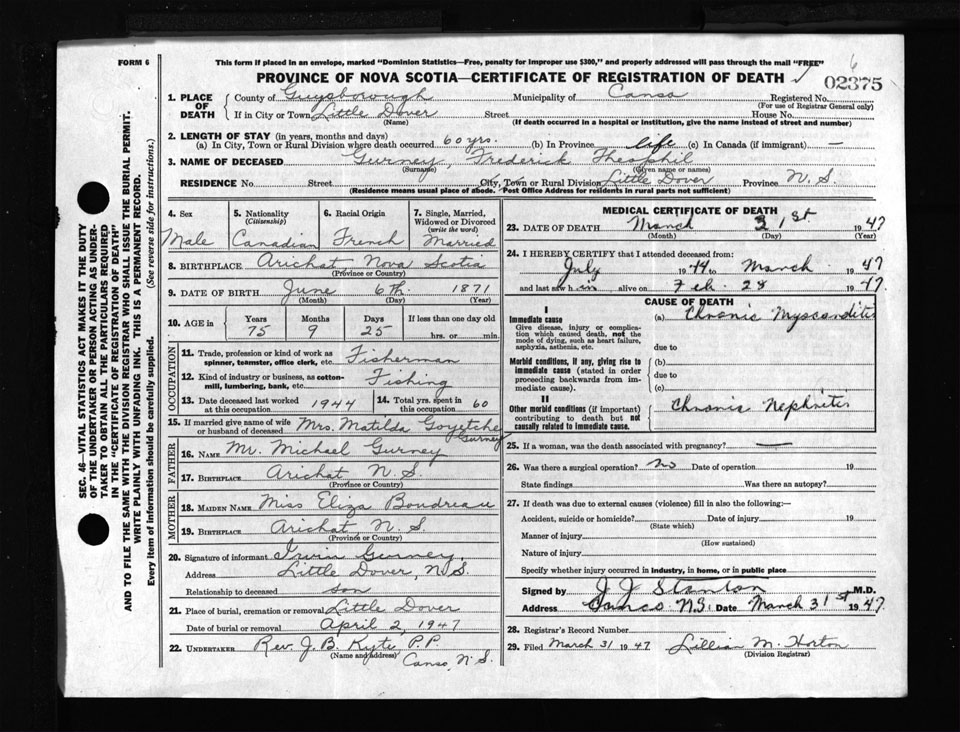 FORM 6
This form if placed in an envelope, marked "Dominion Statistics—Free, penalty for improper use $300," and properly addressed will pass through the mail "FREE"
6
PROVINCE OF NOVA SCOTIA—CERTIFICATE OF REGISTRATION OF DEATH
02375
1. PLACE OF DEATH County of Guysborough Municipality of Canso Registered No.
(For use of Registrar General only)
If in City or Town Little Dover Street House No.
(Name) (If death occurred in a hospital or institution, give the name instead of street and number)
2. LENGTH OF STAY (in years, months and days)
(a) In City, Town or Rural Division where death occurred 60 yrs. (b) In Province life (c) In Canada (if immigrant) —
3. NAME OF DECEASED Gurney, Frederick Theophil
(Surname) (Given name or names)
RESIDENCE No. Street City, Town or Rural Division Little Dover Province N. S.
(Residence means usual place of abode. Post Office Address for residents in rural parts not sufficient)
4. Sex 5. Nationality (Citizenship) 6. Racial Origin 7. Single, Married, Widowed or Divorced (write the word)
Male Canadian French Married
8. BIRTHPLACE Arichat Nova Scotia
(Province or Country)
9. DATE OF BIRTH June 6th. 1871
(Month) (Day) (Year)
10. AGE in Years Months Days If less than one day old
75 9 25 hrs. or min.
OCCUPATION
11. Trade, profession or kind of work as spinner, teamster, office clerk, etc. Fisherman
12. Kind of industry or business, as cotton-mill, lumbering, bank, etc. Fishing
13. Date deceased last worked at this occupation 1944 14. Total yrs. spent in this occupation 60
15. If married give name of wife or husband of deceased Mrs. Matilda Goyetche Gurney
FATHER
16. NAME Mr. Michael Gurney
17. BIRTHPLACE Arichat N. S.
(Province or Country)
MOTHER
18. MAIDEN NAME Miss Eliza Boudreau
19. BIRTHPLACE Arichat N. S.
(Province or Country)
20. Signature of informant Irvin Gurney.
Address Little Dover, N. S.
Relationship to deceased son
21. Place of burial, cremation or removal Little Dover
Date of burial or removal April 2, 1947
22. UNDERTAKER Rev. J. B. Kyte P. P.
(Name and address) Canso, N. S.
MEDICAL CERTIFICATE OF DEATH
23. DATE OF DEATH March 31st. 1947
(Month) (Day) (Year)
24. I HEREBY CERTIFY that I attended deceased from:
July 1944 to March 1947
and last saw him alive on Feb. 28 1947.
CAUSE OF DEATH
I
Immediate cause
Give disease, injury or complication which caused death, not the mode of dying, such as heart failure, asphyxia, asthenia, etc.
(a) Chronic Myocarditis
due to
Morbid conditions, if any, giving rise to immediate cause (stated in order proceeding backwards from immediate cause).
(b)
due to
(c)
II
Other morbid conditions (if important) contributing to death but not causally related to immediate cause.
Chronic Nephritis
25. If a woman, was the death associated with pregnancy? —
26. Was there a surgical operation? no Date of operation 19
State findings Was there an autopsy?
27. If death was due to external causes (violence) fill in also the following:—
Accident, suicide or homicide? Date of injury 19
(State which)
Manner of injury
(How sustained)
Nature of injury
Specify whether injury occurred in industry, in home, or in public place
Signed by J J Stanton M.D.
Address Canso N.S. Date March 31st 1947.
28. Registrar's Record Number
29. Filed March 31 1947 Lillian M. Horton
(Division Registrar)
SEC. 46—VITAL STATISTICS ACT MAKES IT THE DUTY
OF THE UNDERTAKER OR PERSON ACTING AS UNDER-
TAKER TO OBTAIN ALL THE PARTICULARS REQUIRED
IN THE "CERTIFICATE OF REGISTRATION OF DEATH"
AND TO FILE THE SAME WITH THE DIVISION REGISTRAR WHO SHALL ISSUE THE BURIAL PERMIT.
WRITE PLAINLY WITH UNFADING INK. THIS IS A PERMANENT RECORD.
Every item of information should be carefully supplied. (See reverse side for instructions.)